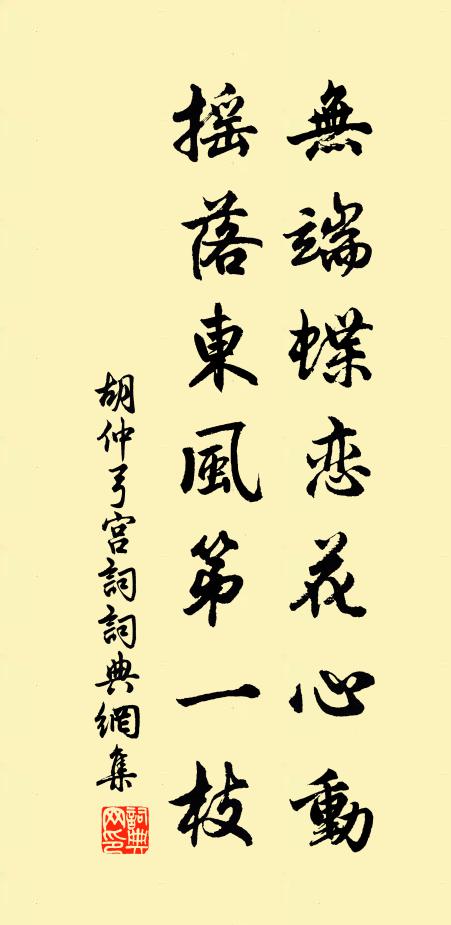 無端蝶恋花心動
摇落東風第一枝
胡仲弓宫詞詞典網集
詞典网印